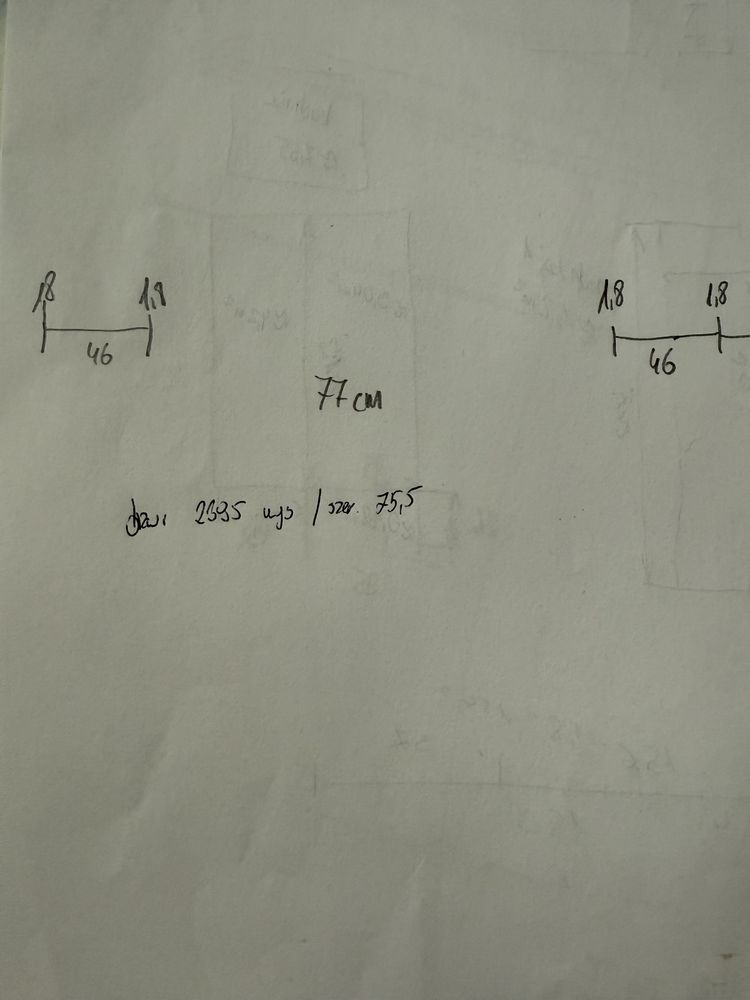 1,8 1,8 1,8 1,8
46 46
77 cm
drzwi 2395 wys / szer. 75,5